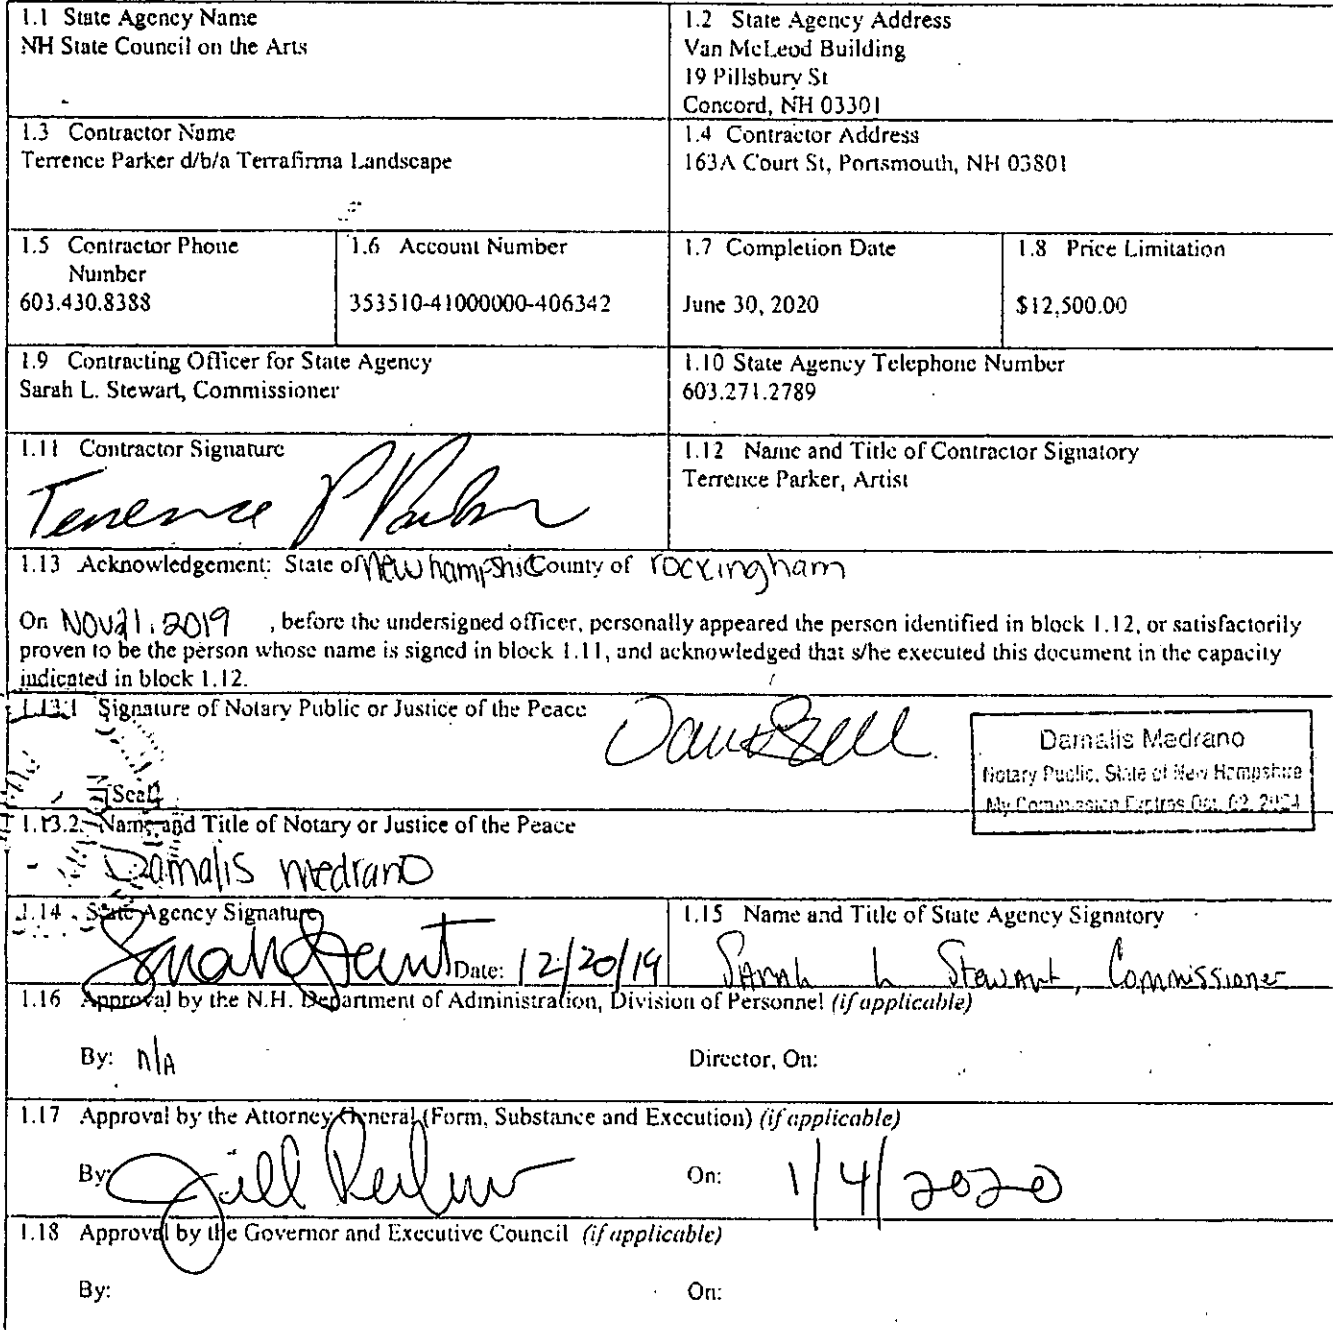 1.1 State Agency Name
NH State Council on the Arts
1.2 State Agency Address
Van McLeod Building
19 Pillsbury St
Concord, NH 03301
1.3 Contractor Name
Terrence Parker d/b/a Terrafirma Landscape
1.4 Contractor Address
163A Court St, Portsmouth, NH 03801
1.5 Contractor Phone
Number
603.430.8388
1.6 Account Number
353510-41000000-406342
1.7 Completion Date
June 30, 2020
1.8 Price Limitation
$12,500.00
1.9 Contracting Officer for State Agency
Sarah L. Stewart, Commissioner
1.10 State Agency Telephone Number
603.271.2789
1.11 Contractor Signature
Terrence P Parker
1.12 Name and Title of Contractor Signatory
Terrence Parker, Artist
1.13 Acknowledgement: State of New hampshire County of rockingham
On NOV 21, 2019 , before the undersigned officer, personally appeared the person identified in block 1.12, or satisfactorily
proven to be the person whose name is signed in block 1.11, and acknowledged that s/he executed this document in the capacity
indicated in block 1.12.
1.13.1 Signature of Notary Public or Justice of the Peace
[Seal]
Damalis Medrano
Notary Public, State of New Hampshire
My Commission Expires Oct. 02, 2024
1.13.2 Name and Title of Notary or Justice of the Peace
Damalis medrano
1.14 State Agency Signature
Date: 12/20/19
1.15 Name and Title of State Agency Signatory
Sarah L Stewart, Commissioner
1.16 Approval by the N.H. Department of Administration, Division of Personnel (if applicable)
By: n/A
Director, On:
1.17 Approval by the Attorney General (Form, Substance and Execution) (if applicable)
By: Jill Perlow
On: 1/4/2020
1.18 Approval by the Governor and Executive Council (if applicable)
By:
On: